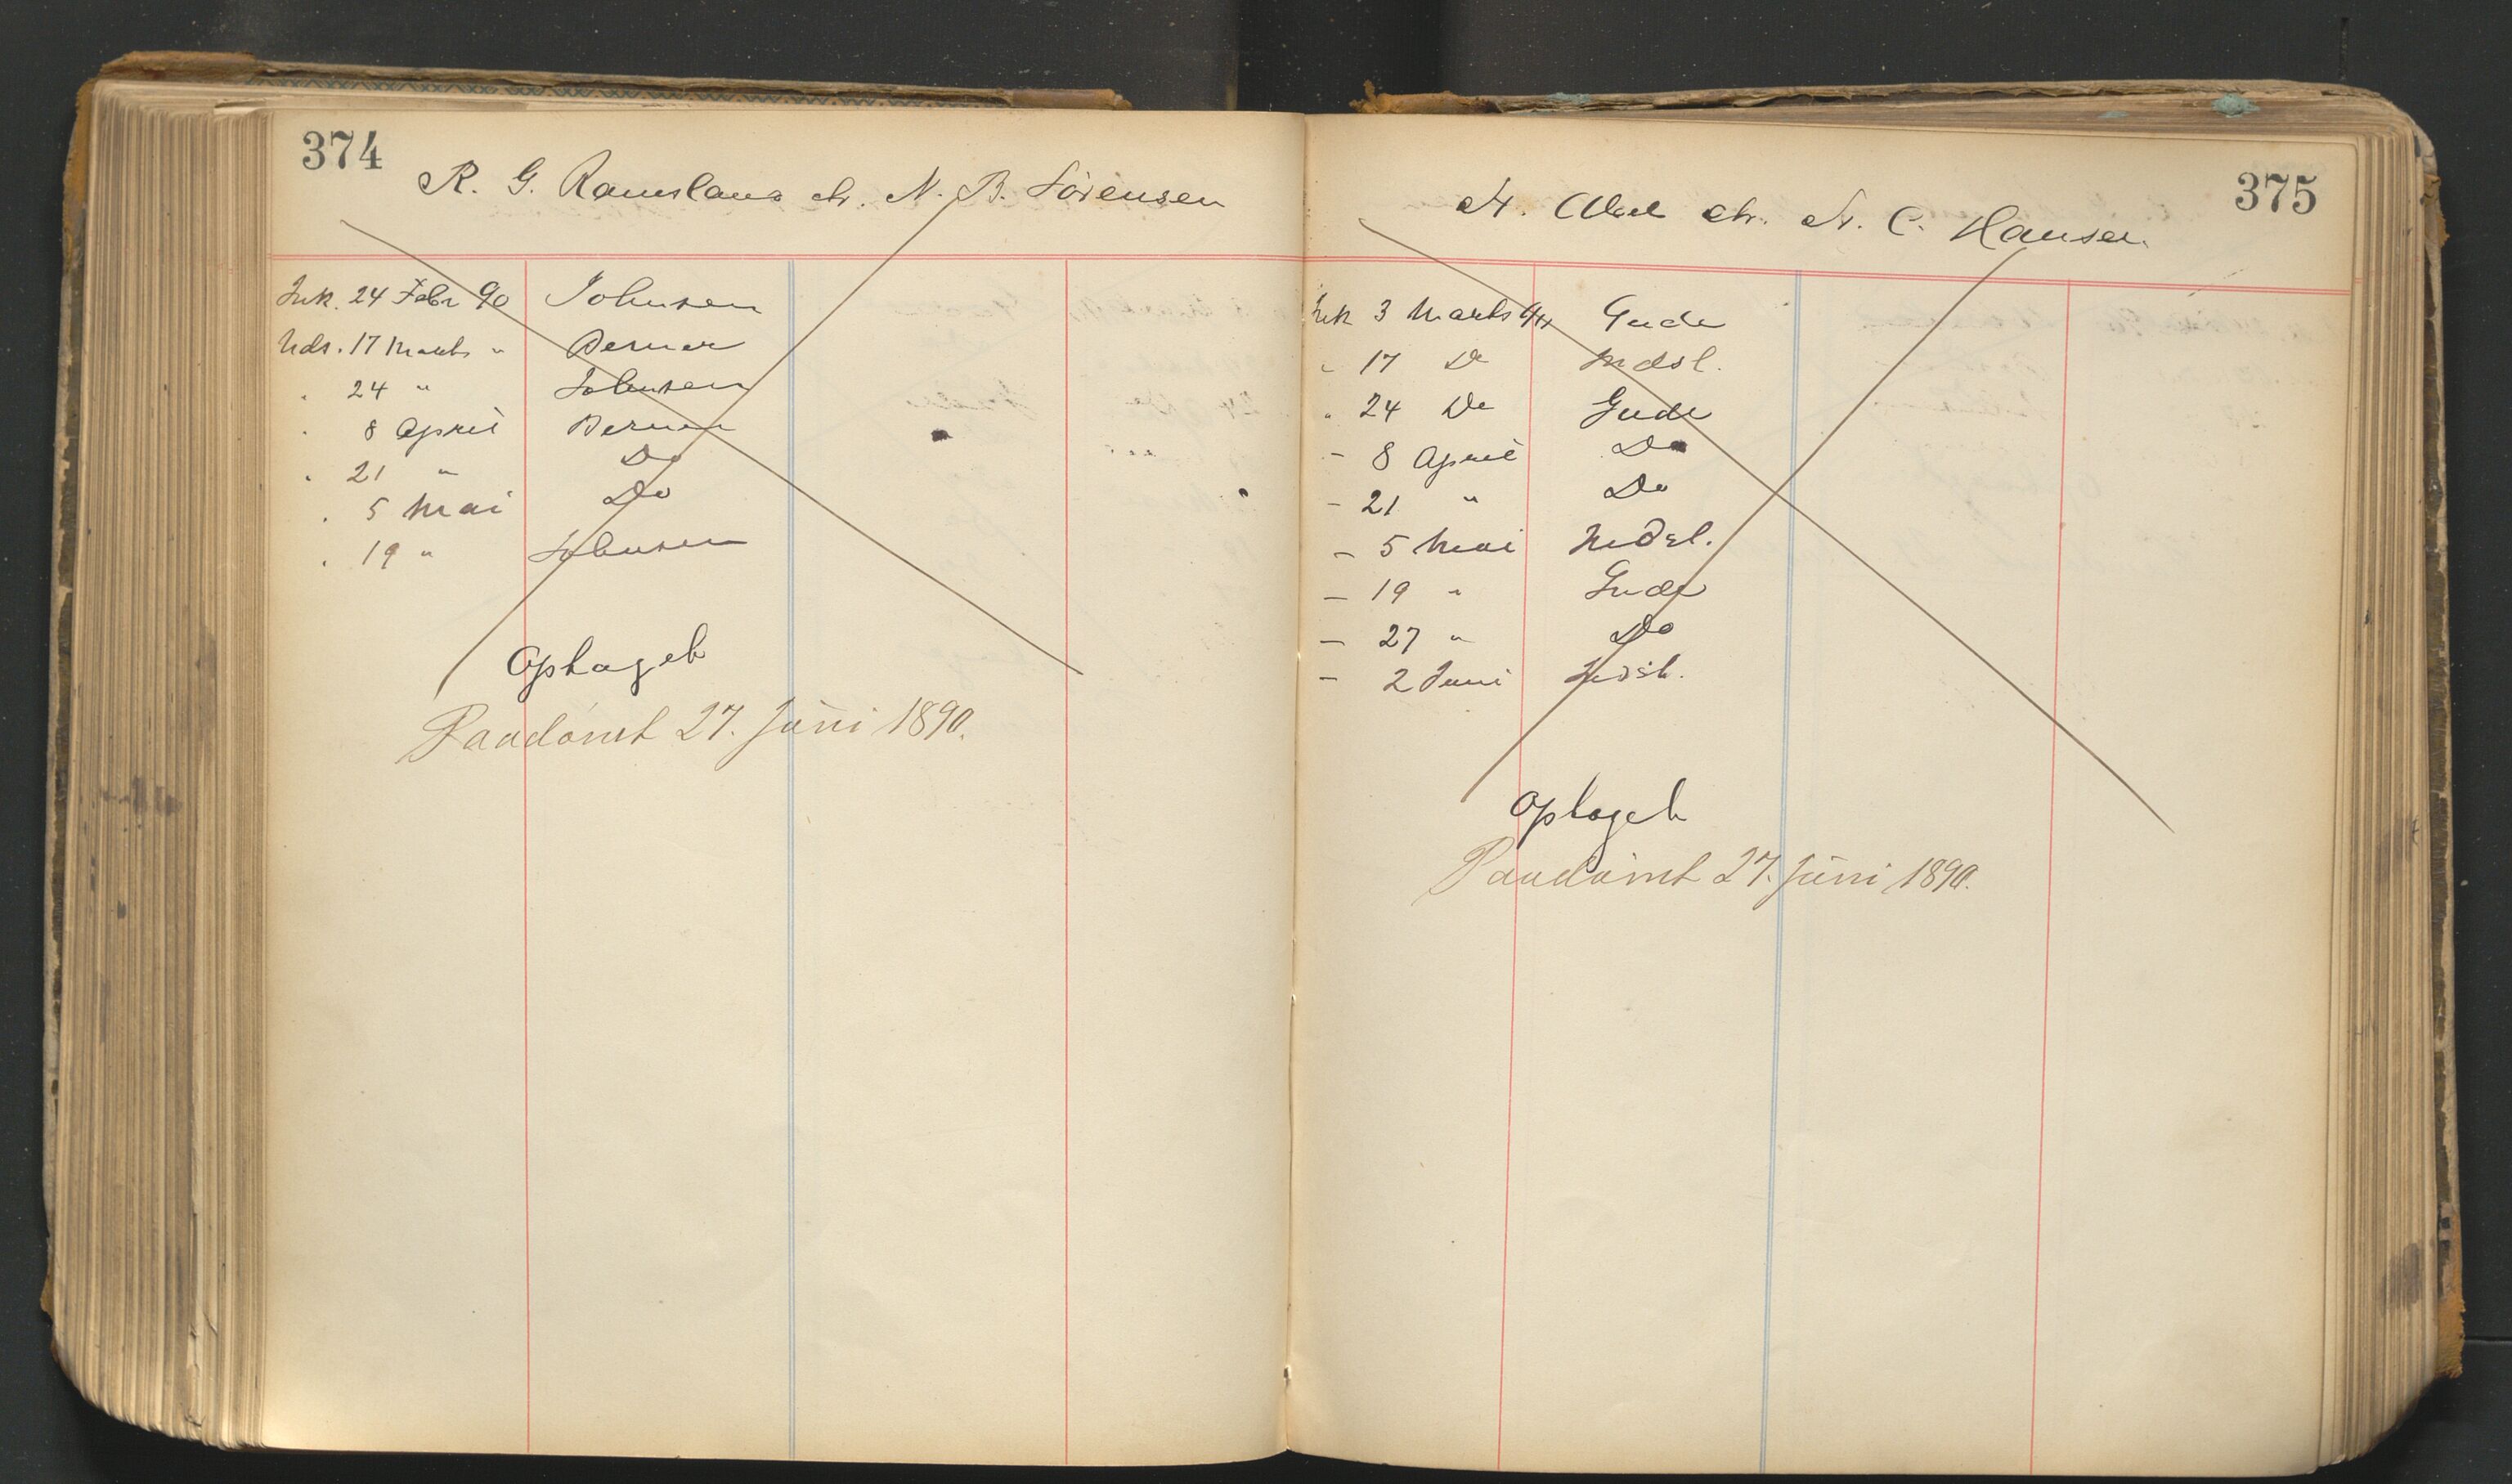 374
R. G. Ramsland ctr. N. B. Sörensen
Ink. 24 Febr 90 Johnsen
Uds. 17 Marts " Berner
" 24 " Johnsen
" 8 April Berner
" 21 " Do
" 5 Mai Do
" 19 " Johnsen
Optaget
Paadömt 27. Juni 1890.
375
N. Abel ctr. N. C. Hansen
Ink 3 Marts 90 Gude
" 17 Do Indst.
" 24 De Gude
- 8 April Do
- 21 " Do
- 5 Mai
- 19 " Gude
- 27 " Do
- 2 Juni
Optaget
Paadömt 27. Juni 1890.